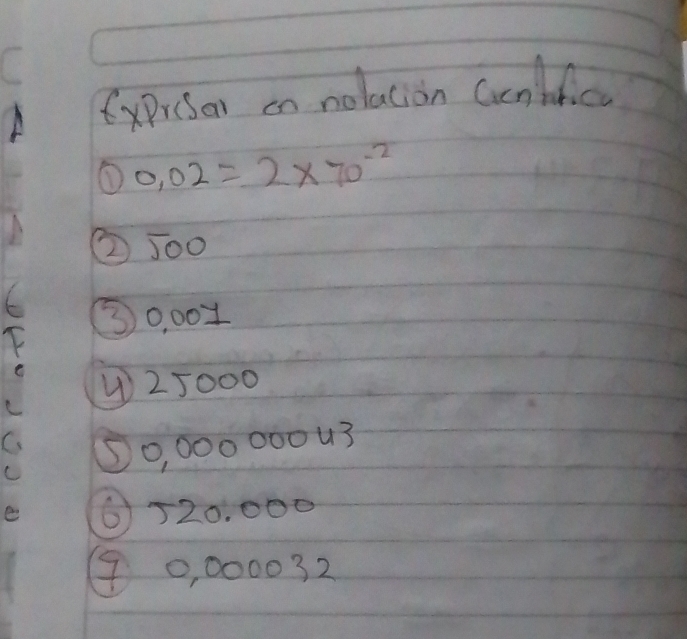 Expresar en notación Científica
① 0,02 = 2 x 10⁻²
② 500
③ 0,001
④ 25000
⑤ 0,000 000 43
⑥ 520.000
⑦ 0,000032